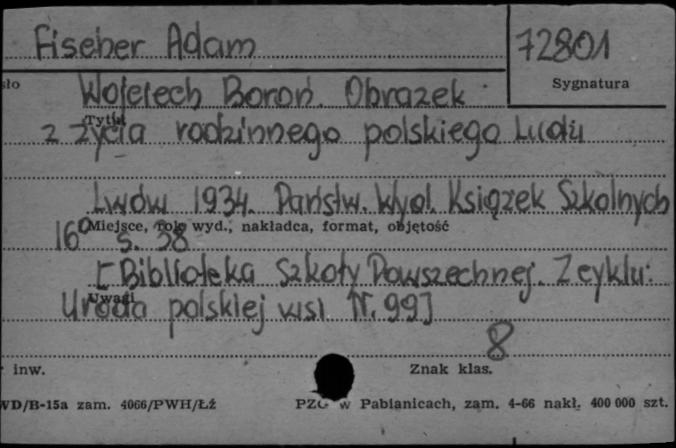 Fischer Adam
72801
sło
Sygnatura
Wojciech Boroń. Obrazek
Tytuł
z życia rodzinnego polskiego Ludu
Lwów 1934. Państw. Wyd. Książek Szkolnych
Miejsce, rok wyd., nakładca, format, objętość
16° s. 38
[Biblioteka Szkoły Powszechnej. Z cyklu:
Uwagi
Uroda polskiej wsi Nr. 99]
8
inw.
Znak klas.
WD/B-15a zam. 4066/PWH/Łź
PZG w Pabianicach, zam. 4-66 nakł. 400 000 szt.